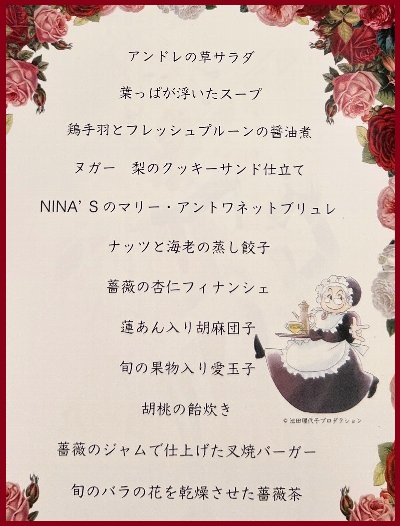 アンドレの草サラダ
葉っぱが浮いたスープ
鶏手羽とフレッシュプルーンの醤油煮
ヌガー　梨のクッキーサンド仕立て
NINA'Sのマリー・アントワネットブリュレ
ナッツと海老の蒸し餃子
薔薇の杏仁フィナンシェ
蓮あん入り胡麻団子
旬の果物入り愛玉子
胡桃の飴炊き
©池田理代子プロダクション
薔薇のジャムで仕上げた叉焼バーガー
旬のバラの花を乾燥させた薔薇茶